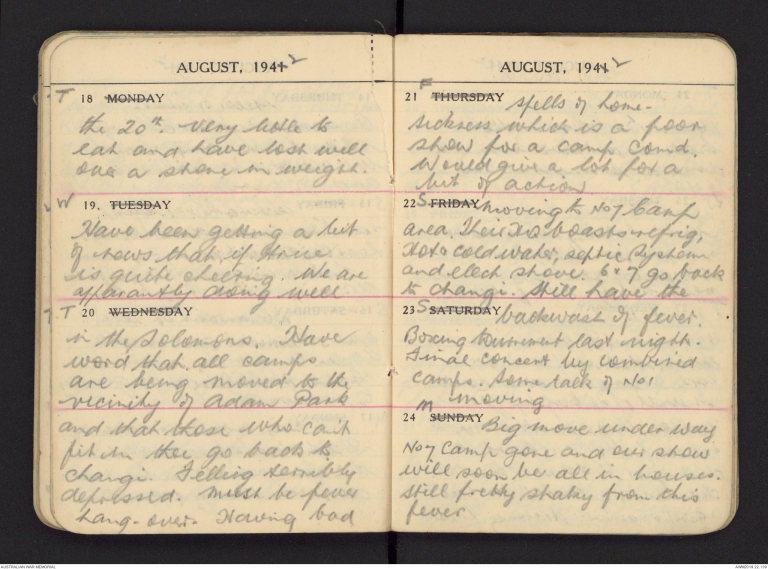 AUGUST, 1942
T
18 MONDAY
the 20th. Very little to
eat and have lost well
over a stone in weight.
W
19. TUESDAY
Have been getting a bit
of news that if true
is quite cheering. We are
apparantly doing well
T
20 WEDNESDAY
in the Solomons. Have
word that all camps
are being moved to the
vicinity of Adam Park
and that those who can't
fit in there go back to
Changi. Felling terribly
depressed. Must be fever
hang-over. Having bad
AUGUST, 1942
F
21 THURSDAY spells of home-
sickness which is a poor
show for a camp Comd.
Would give a lot for a
bit of action
S
22 FRIDAY moving to No 7 Camp
area. Their boasts refrig,
Hot & cold water, septic system
and elect stove. 6 & 7 go back
to Changi. Still have the
S
23 SATURDAY backwash of fever
Boxing turnment last night.
Final concert by combined
camps. Some talk of No 1
moving
M
24 SUNDAY Big move under way
No 7 Camp gone and our show
will soon be all in houses.
Still pretty shaky from this
fever
AUSTRALIAN WAR MEMORIAL
AWM2019.22.139